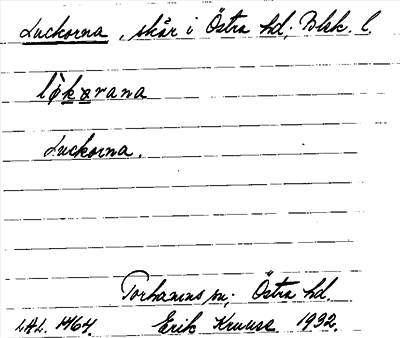 Luckorna, skär i Östra hd; Blek. l.
lòkərana
Luckorna.
Torhamns sn; Östra hd.
LAL. 1464. Erik Kruuse 1932.